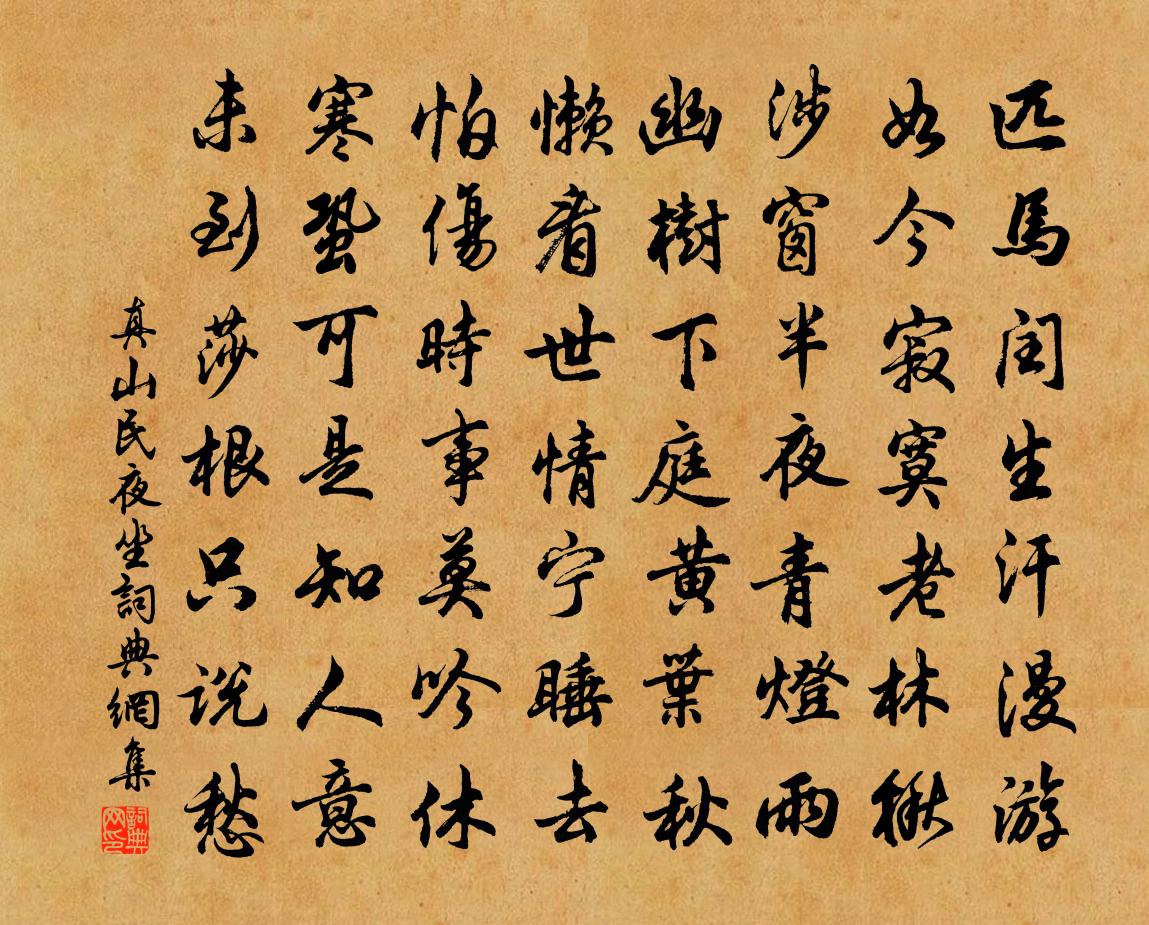 匹馬閏生汗漫游
如今寂寞老林楸
涉窗半夜青燈雨
幽樹下庭黃葉秋
懶看世情宁睡去
怕傷時事莫吟休
寒蛩可是知人意
未到莎根只説愁
真山民夜坐詞典網集
詞典网印